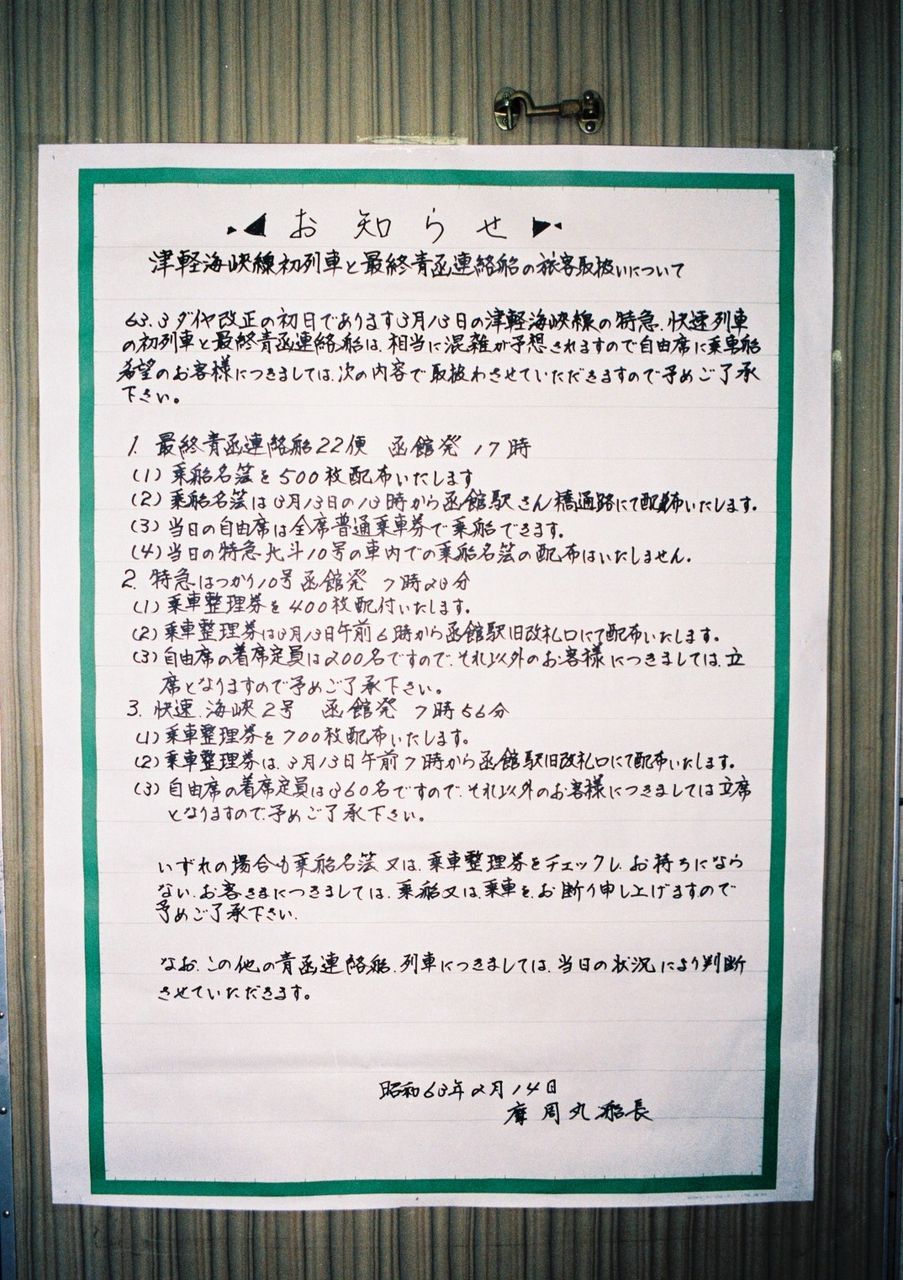 お知らせ
津軽海峡線初列車と最終青函連絡船の旅客取扱いについて
63.3ダイヤ改正の初日であります3月13日の津軽海峡線の特急、快速列車
の初列車と最終青函連絡船は、相当に混雑が予想されますので自由席に乗車船
希望のお客様につきましては、次の内容で取扱わさせていただきますので予めご了承
下さい。
1. 最終青函連絡船22便 函館発 17時
(1) 乗船名簿を500枚配布いたします
(2) 乗船名簿は3月13日の13時から函館駅さん橋通路にて配布いたします。
(3) 当日の自由席は全席普通乗車券で乗船できます。
(4) 当日の特急北斗10号の車内での乗船名簿の配布はいたしません。
2. 特急はつかり10号 函館発 7時23分
(1) 乗車整理券を400枚配付いたします。
(2) 乗車整理券は3月13日午前6時から函館駅旧改札口にて配布いたします。
(3) 自由席の着席定員は200名ですので、それ以外のお客様につきましては、立
席となりますので予めご了承下さい。
3. 快速、海峡2号 函館発 7時56分
(1) 乗車整理券を700枚配布いたします。
(2) 乗車整理券は、3月13日午前7時から函館駅旧改札口にて配布いたします。
(3) 自由席の着席定員は360名ですので、それ以外のお客様につきましては立席
となりますので、予めご了承下さい。
いずれの場合も乗船名簿又は、乗車整理券をチェックし、お持ちになら
ない、お客さまにつきましては、乗船又は、乗車を、お断り申し上げますので
予めご了承下さい。
なお、この他の青函連絡船、列車につきましては、当日の状況により判断
させていただきます。
昭和63年2月14日
摩周丸船長